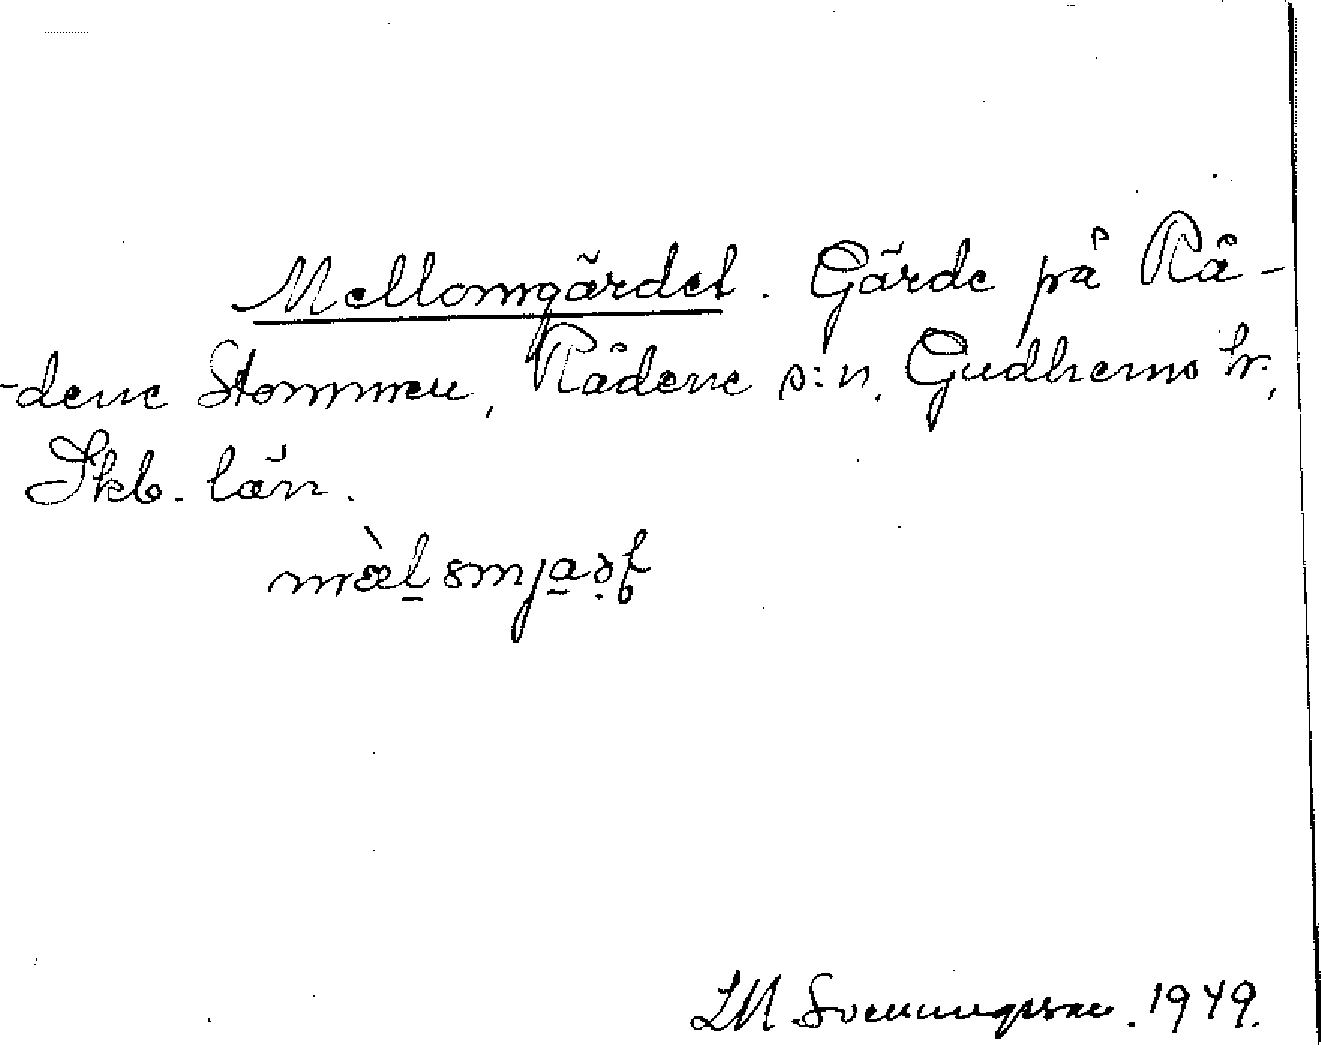 Mellomgärdet. Gärde på Rå-
-dene Stommen, Rådene s:n, Gudhems hr,
Skb. län.
LM Svenungsson. 1949.